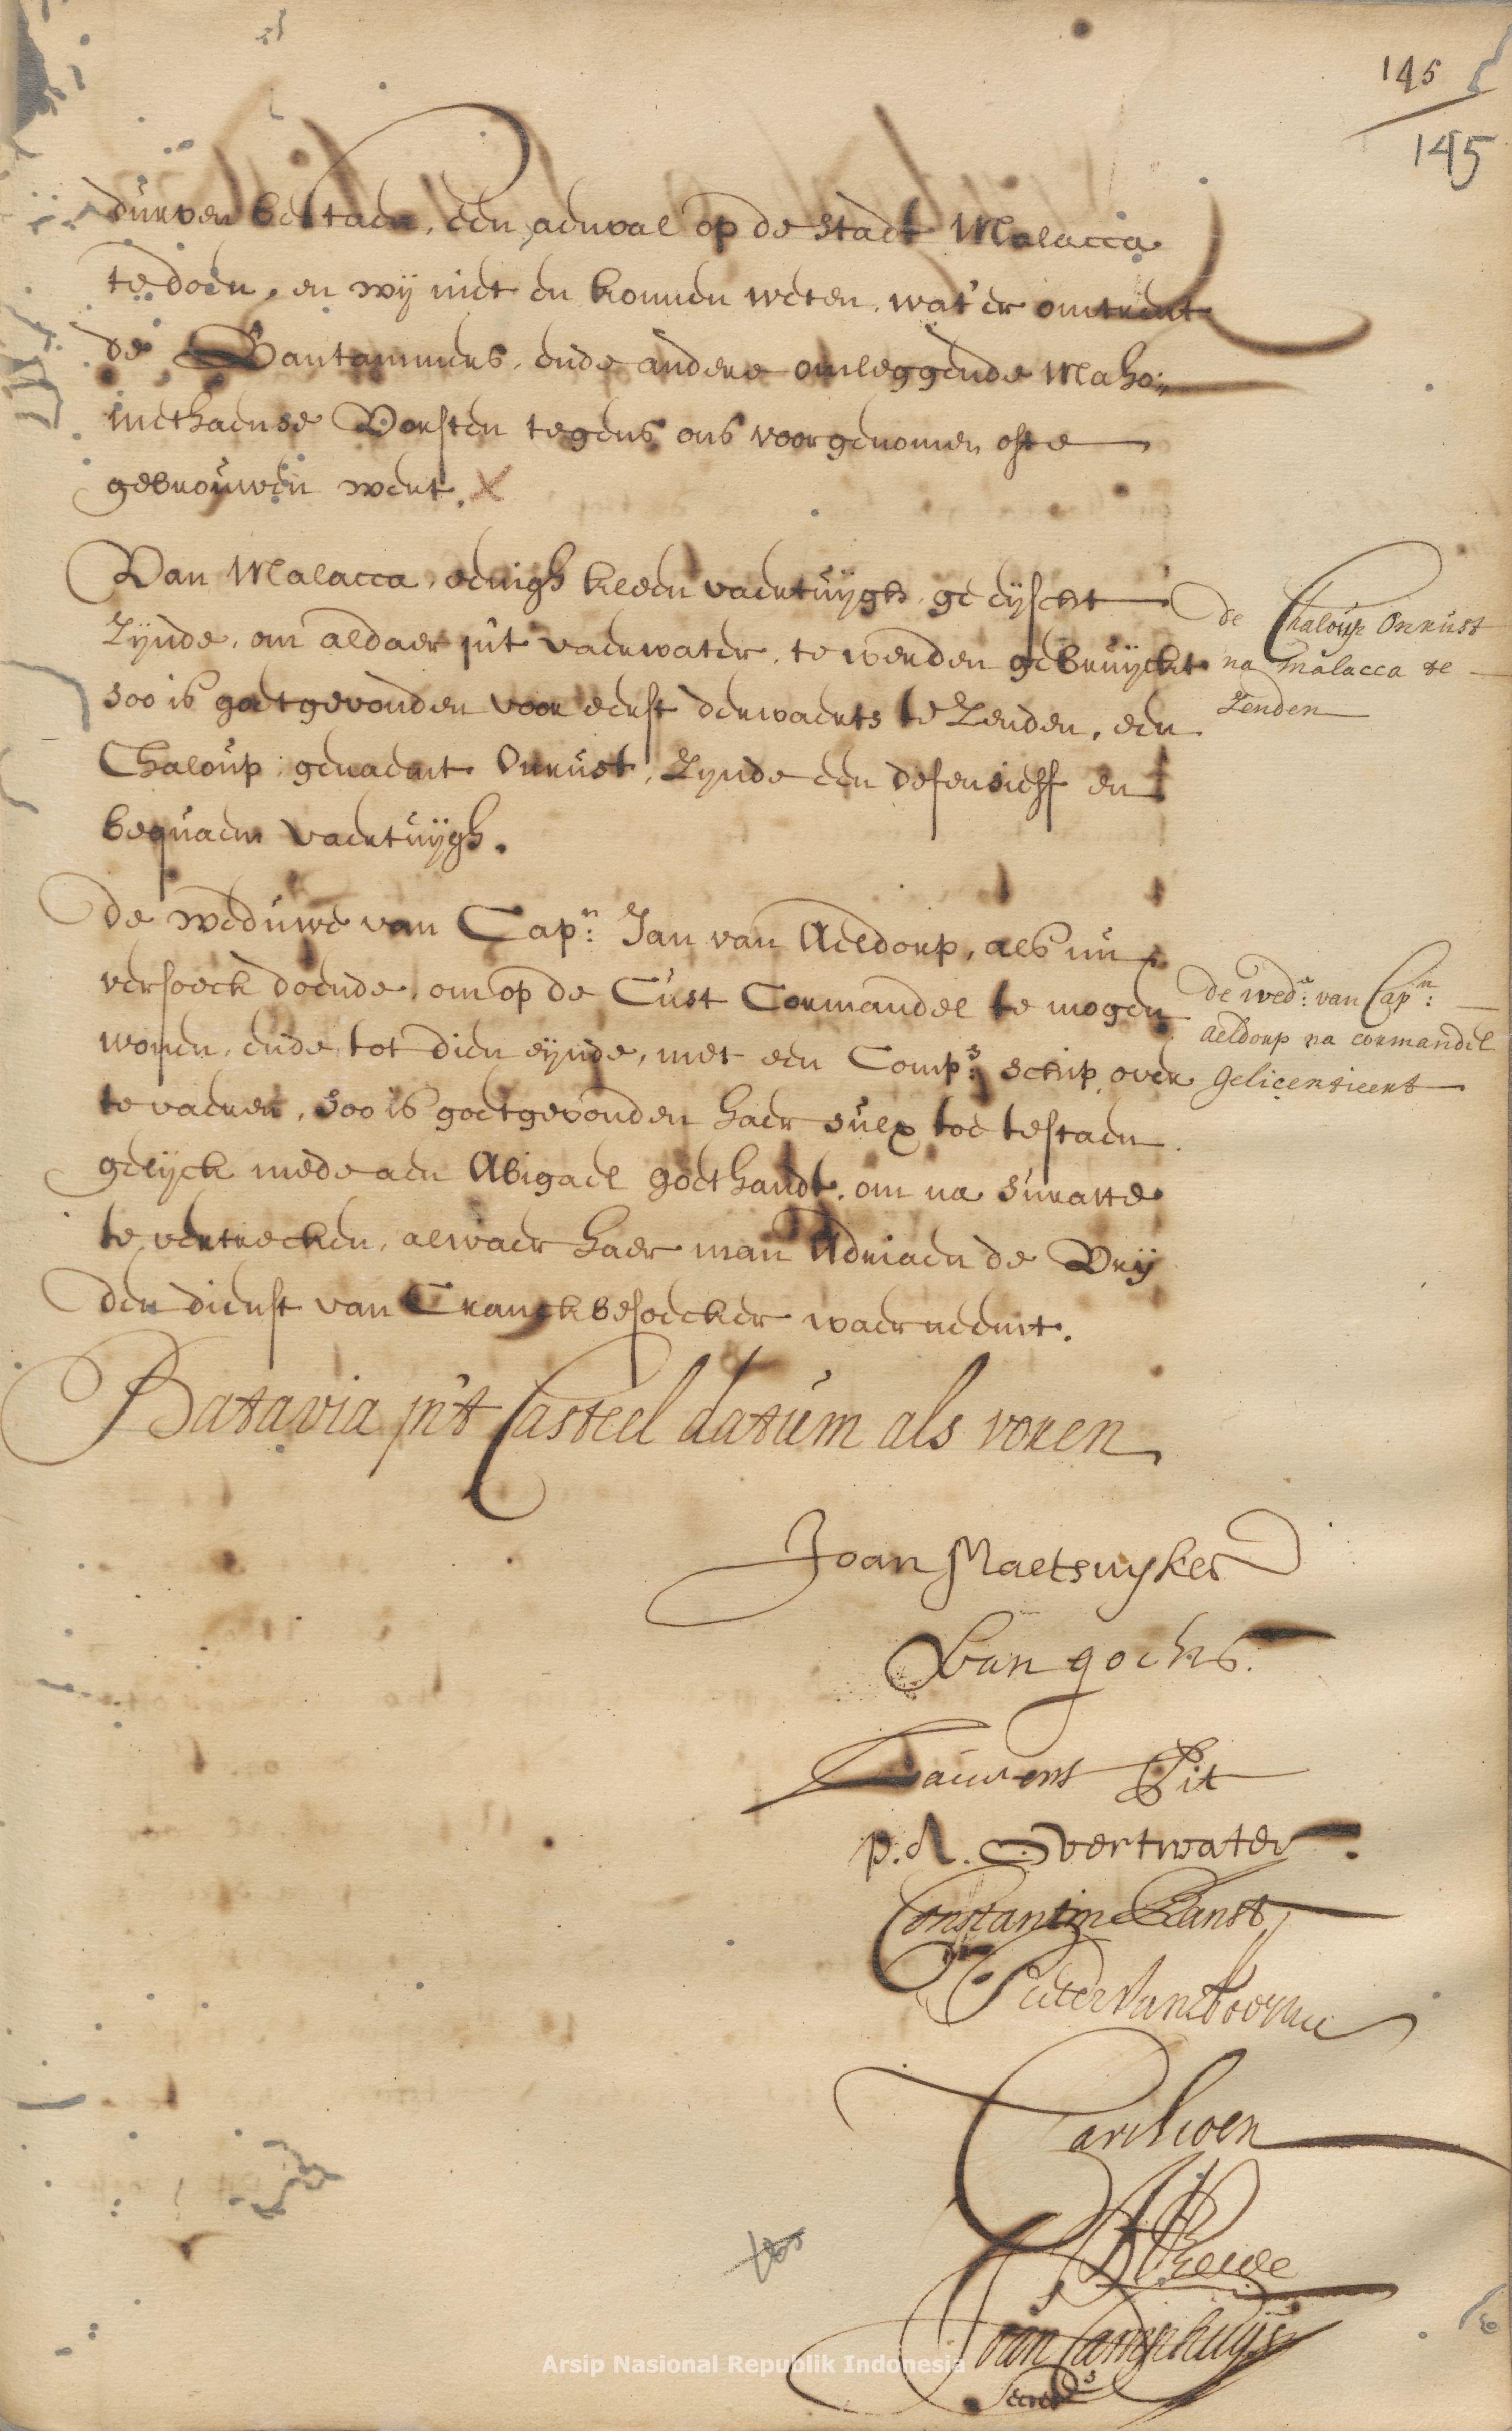 145
145
durven bestaen, een aenval op de stadt Malacca
te doen, en wij niet en konnen weten, wat'er omtrent
de Bantammers, ende andere omleggende Maho„
methaense Vorsten tegens ons voorgenomen ofte
gebrouwen wert. X
Van Malacca, eenigh kleen vaertuijgh, geeijscht
Zijnde, om aldaer in't vaerwater, te werden gebruijckt
soo is goetgevonden voor eerst derwaerts te Zenden, een
Chaloup, genaemt Onrust, Zijnde een defensieff en
bequaem vaertuijgh.
de Chaloup Onrust
na malacca te
Zenden
De weduwe van Capn: Jan van Aeldorp, als nu
versoeck doende, om op de Cust Cormandel te mogen
wonen, ende tot dien eijnde, met een Comps: schip, over
te vaeren, soo is goetgevonden haer sulx toe te staen
gelijck mede aen Abigael goethandt, om na Suratte
te vertrecken, alwaer haer man Adriaen de Vrij
den dienst van Cranckbesoecker waerneemt.
de wede: van Capn:
aeldorp na cormandel
gelicentieert
Batavia in't Casteel datum als voren
Joan Maetsuyker
Van goens.
Lauwens Pit
p. A. Overtwater.
Constantin Ranst
Pieter Van hoorn
Cartsioen
Joan Camphuijs
Secrets
Arsip Nasional Republik Indonesia